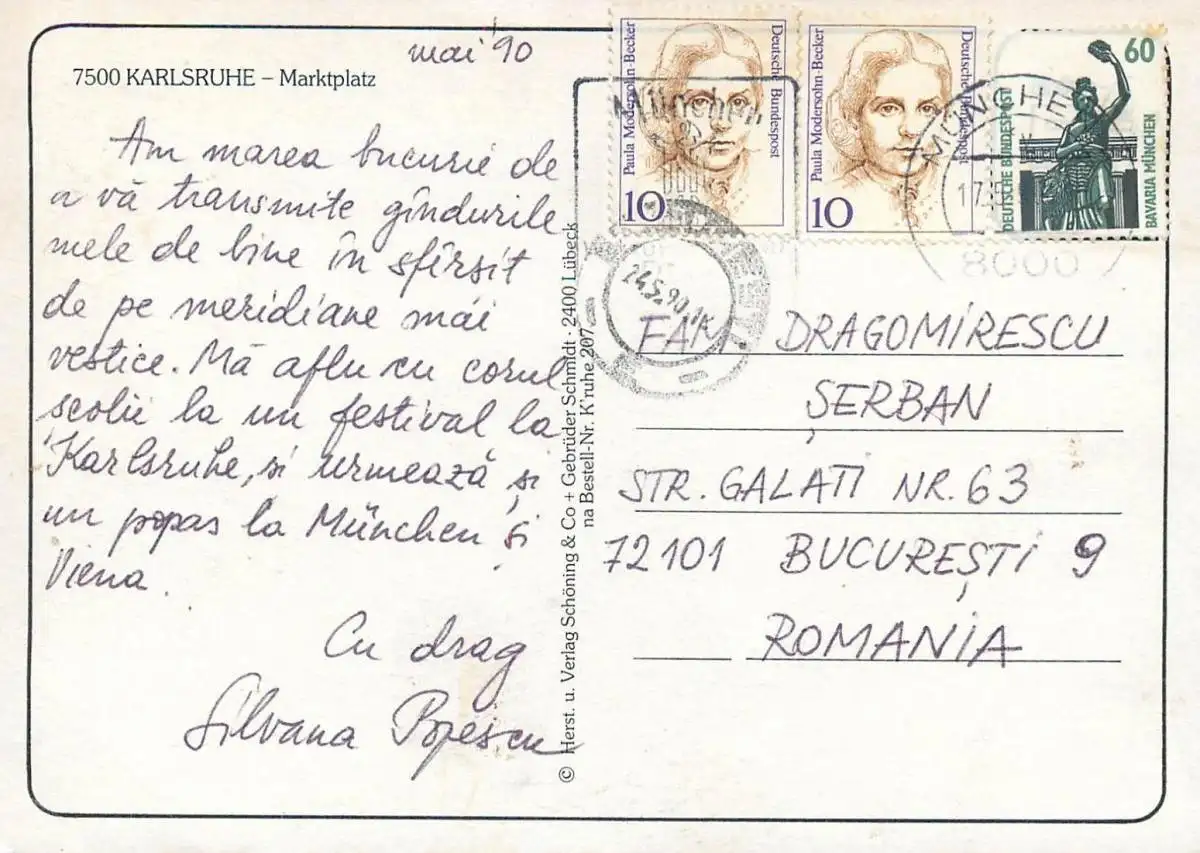 mai '90
7500 KARLSRUHE – Marktplatz
Am marea bucurie de
a vă transmite gîndurile
mele de bine în sfîrsit
de pe meridiane mai
vestice. Mă aflu cu corul
scolii la un festival la
Karlsruhe, si urmează și
un popas la München și
Viena.
Cu drag
Silvana Popescu
© Herst. u. Verlag Schöning & Co + Gebrüder Schmidt · 2400 Lübeck
na Bestell-Nr. K'ruhe 207
Paula Modersohn-Becker
Deutsche Bundespost
10
Paula Modersohn-Becker
Deutsche Bundespost
10
60
DEUTSCHE BUNDESPOST
BAVARIA MÜNCHEN
München
MÜNCHE
17.5
8000
24.5.90
FAM DRAGOMIRESCU
ȘERBAN
STR. GALATI NR. 63
72101 BUCUREȘTI 9
ROMANIA